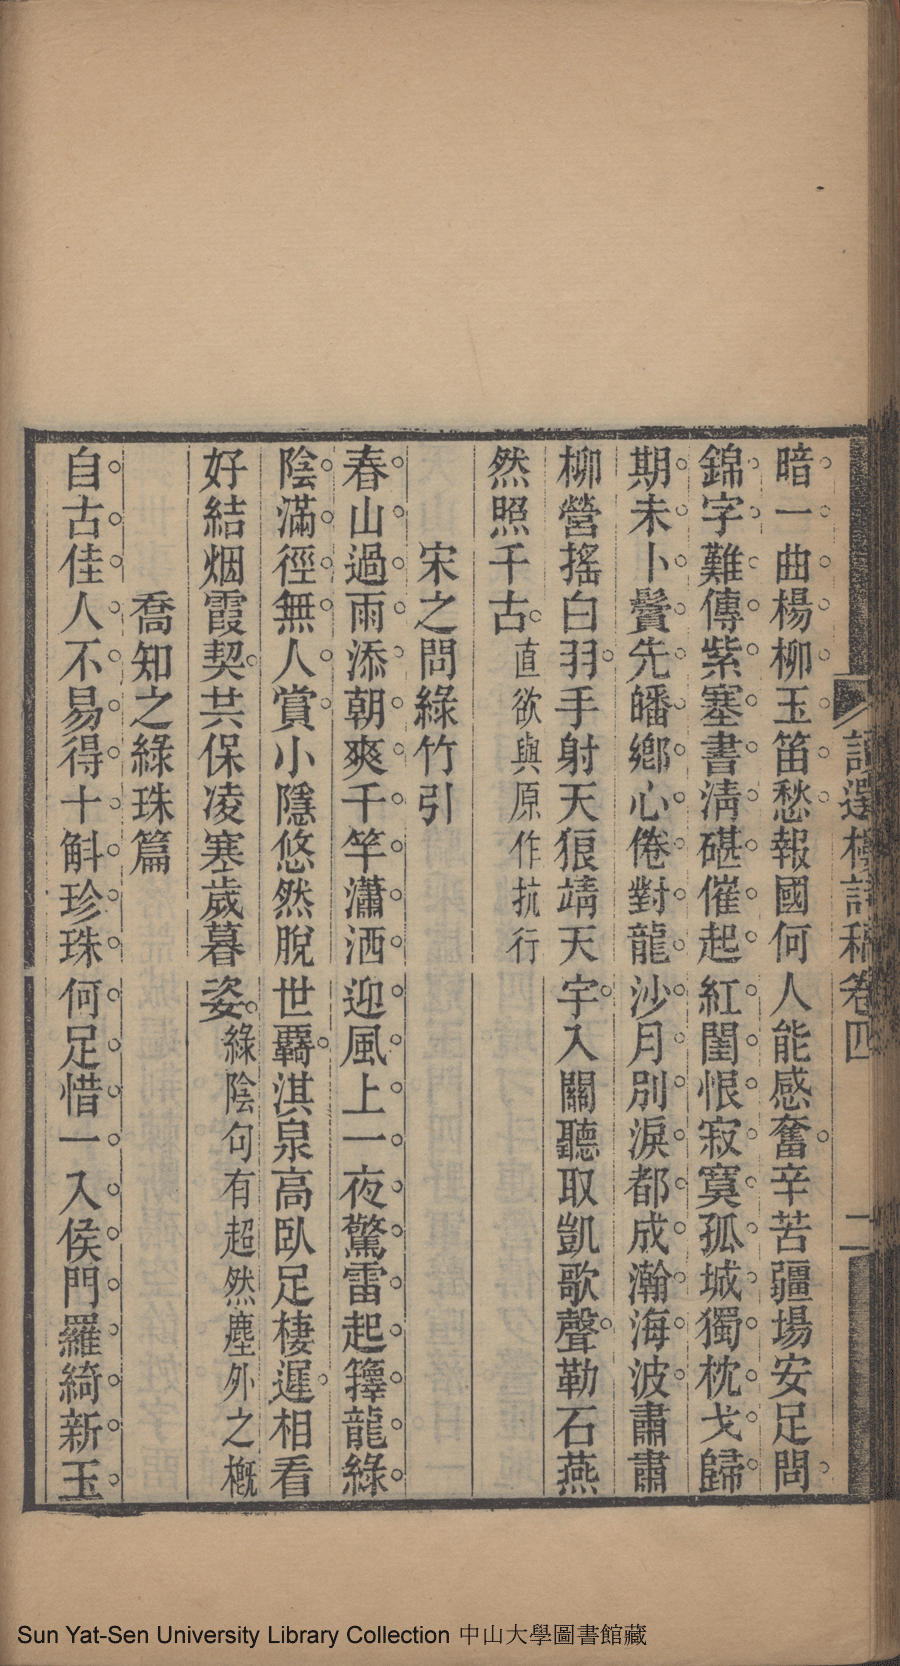 暗一曲楊柳玉笛愁報國何人能感奮辛苦疆場安足問
錦字難傳紫塞書淸碪催起紅閨恨寂寞孤城獨枕戈歸
期未卜鬢先皤鄉心倦對龍沙月別淚都成瀚海波肅肅
柳營搖白羽手射天狼靖天宇入關聽取凱歌聲勒石燕
然照千古直欲與原作抗行
宋之問綠竹引
春山過雨添朝爽千竿瀟洒迎風上一夜驚雷起籜龍綠
陰滿徑無人賞小隱悠然脫世覊淇泉高臥足棲遲相看
好結烟霞契共保凌塞歲暮姿綠陰句有超然塵外之槪
喬知之綠珠篇
自古佳人不易得十斛珍珠何足惜一入侯門羅綺新玉
樓詩稿卷四
二
Sun Yat-Sen University Library Collection 中山大學圖書館藏